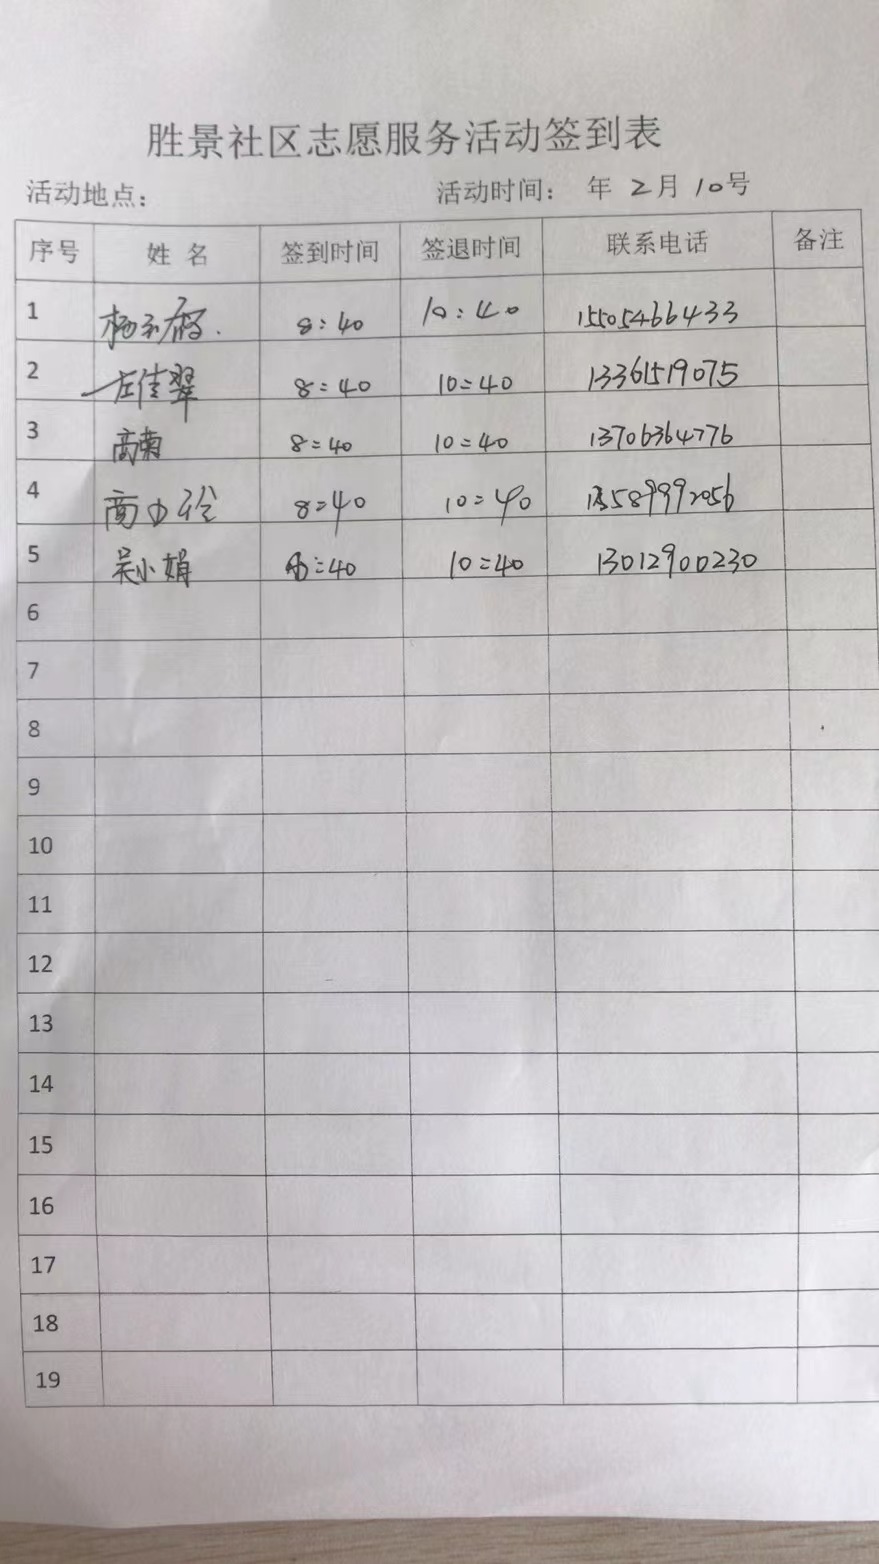 胜景社区志愿服务活动签到表
活动地点： 活动时间： 年 2月 10号
序号 姓 名 签到时间 签退时间 联系电话 备注
1 8:40 10:40 15505466433
2 左佳翠 8:40 10:40 13361519075
3 高南 8:40 10:40 13706364776
4 8:40 10:40 13589992056
5 吴小娟 8:40 10:40 13012900230
6
7
8
9
10
11
12
13
14
15
16
17
18
19